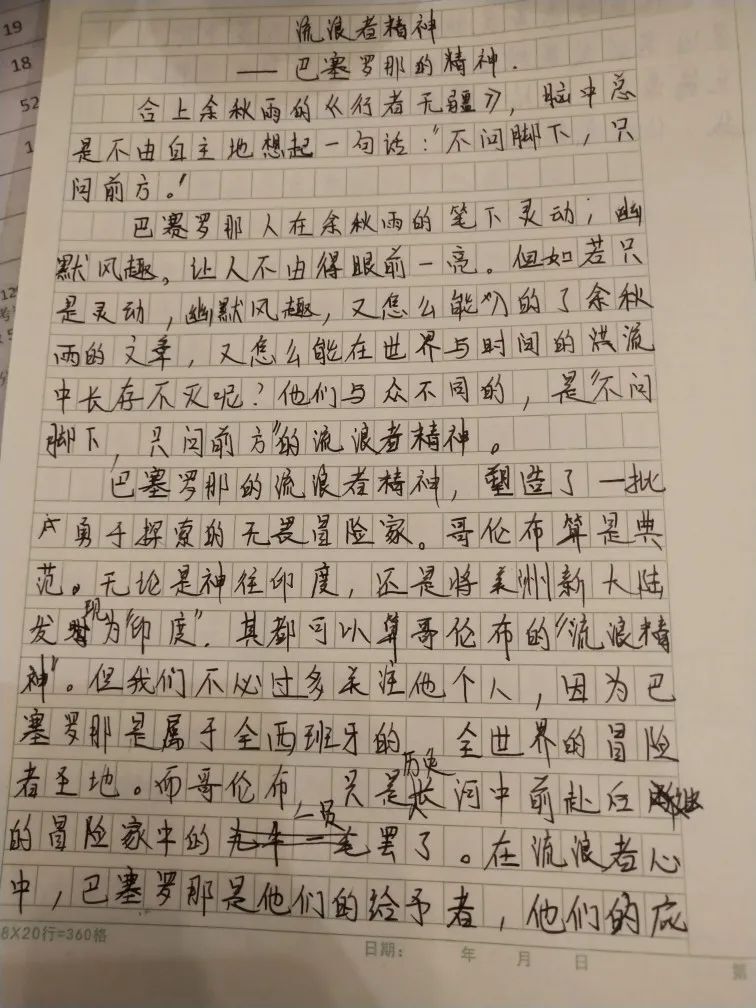 流浪者精神
——巴塞罗那的精神.
合上余秋雨的《行者无疆》，脑中总
是不由自主地想起一句话："不问脚下，只
问前方。"
巴塞罗那人在余秋雨的笔下灵动；幽
默风趣。让人不由得眼前一亮。但如若只
是灵动，幽默风趣，又怎么能的了余秋
雨的文章，又怎么能在世界与时间的洪流
中长存不灭呢？他们与众不同的，是"不问
脚下，只问前方"的流浪者精神。
巴塞罗那的流浪者精神，塑造了一批
勇于探索的无畏冒险家。哥伦布算是典
范。无论是神往印度，还是将美洲新大陆
发现为"印度"．其都可以算哥伦布的"流浪精
神"。但我们不必过多关注他个人，因为巴
塞罗那是属于全西班牙的 全世界的冒险
者圣地。而哥伦布 只是历史长河中前赴后继
的冒险家中的一员罢了。在流浪者心
中，巴塞罗那是他们的给予者，他们的应
8X20行=360格
日期： 年 月 日
第
19
18
52
1